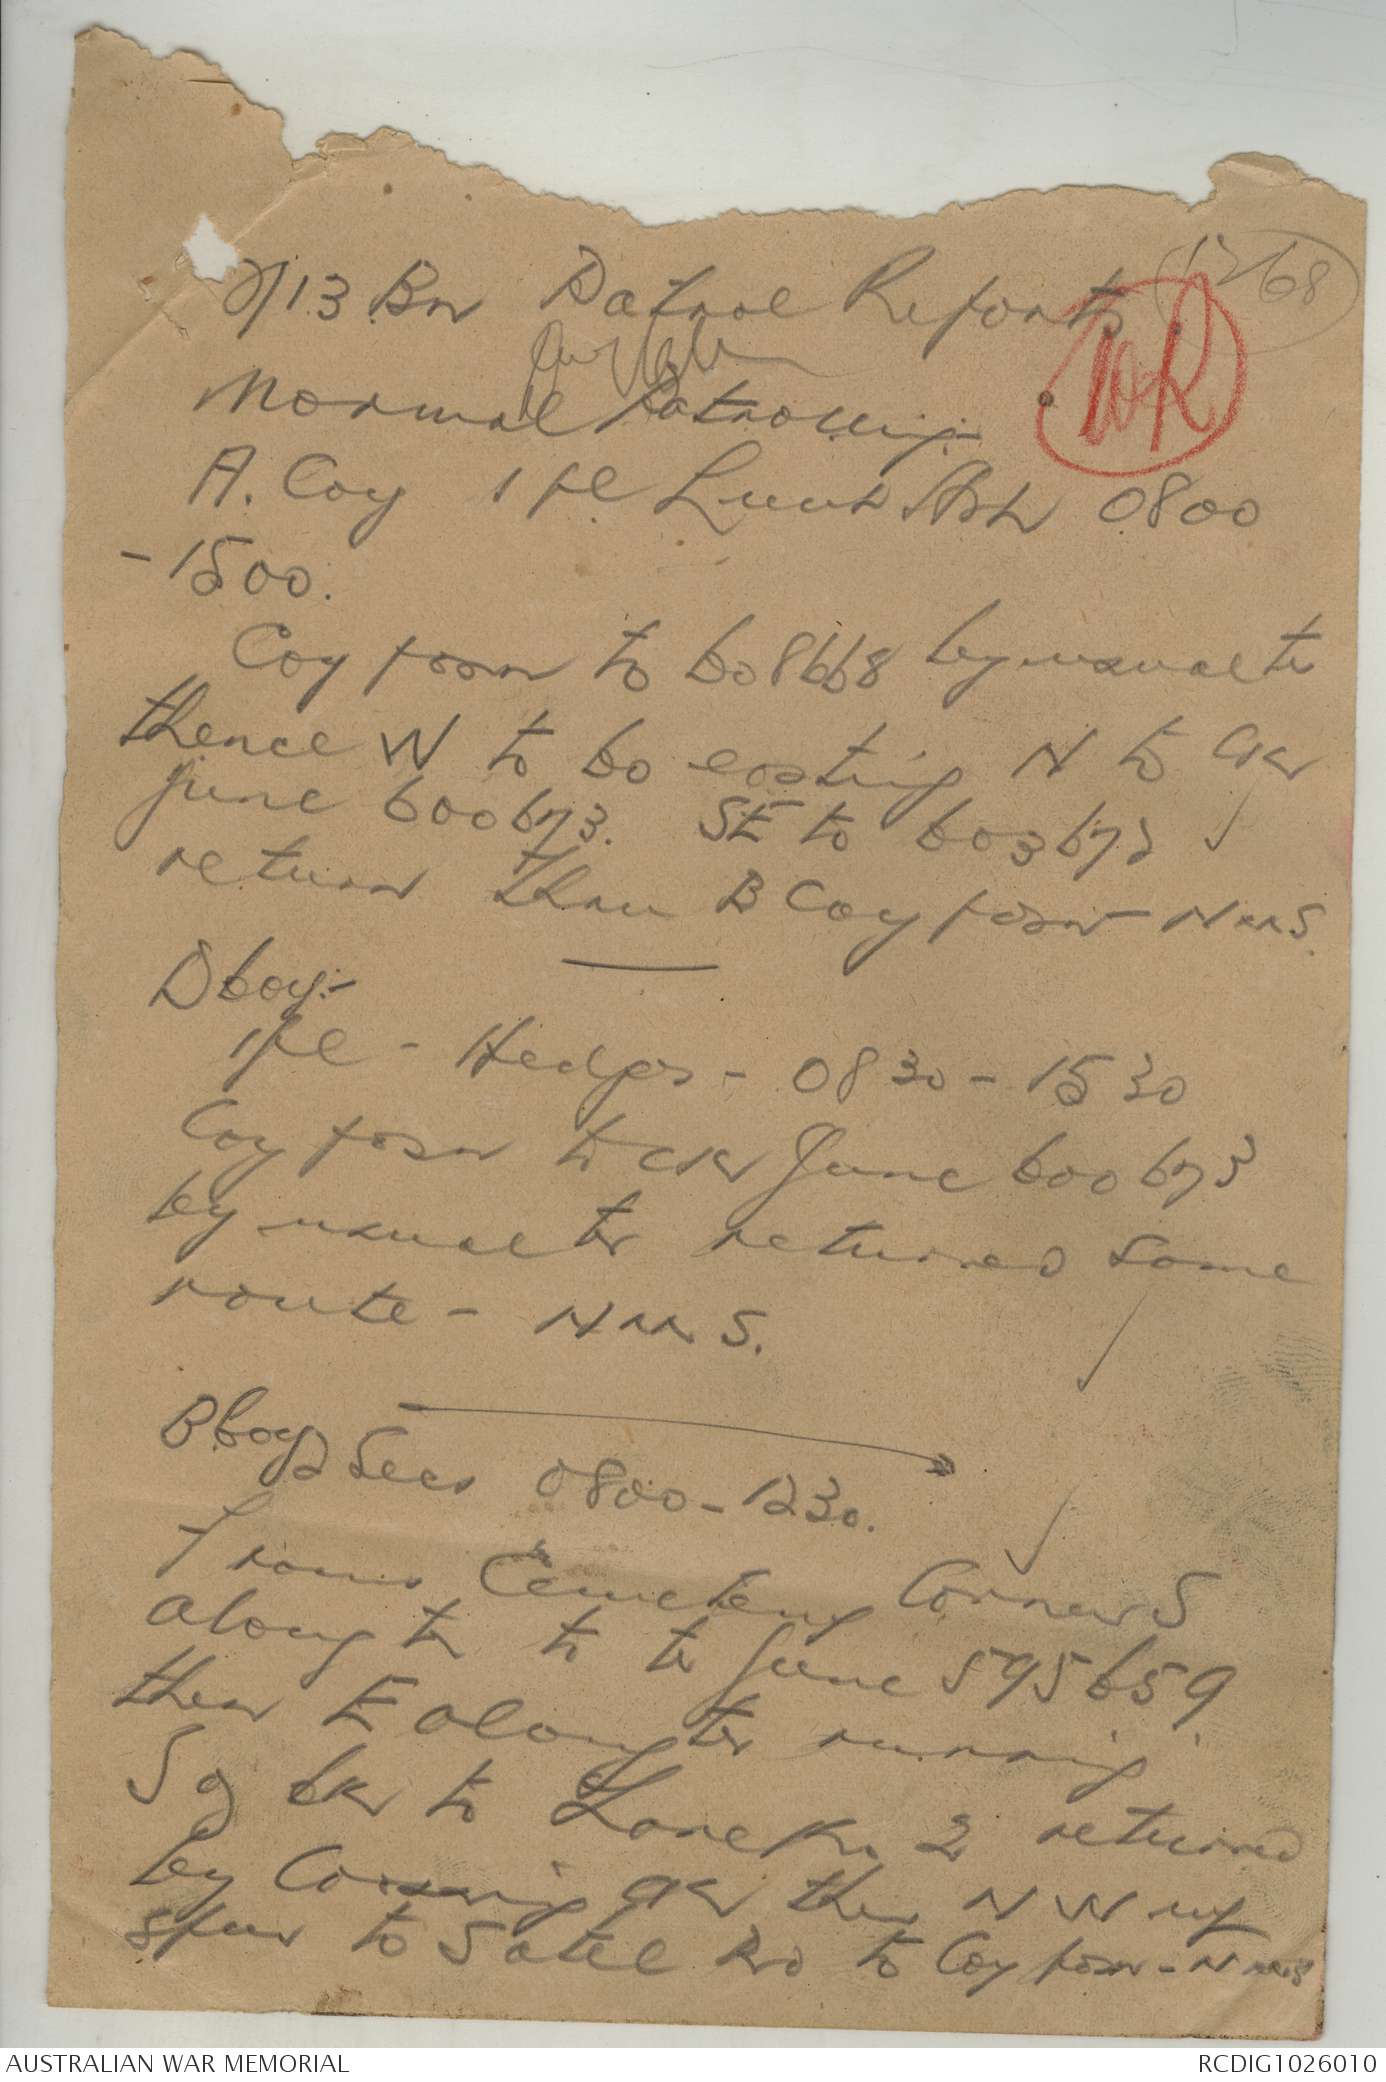 2/13 Bn Patrol Reports
WR
Normal Patrolling:-
A. Coy 1 pl Lieut Ash 0800
- 1500.
Coy posn to 608668 by usual tr
thence W to 60 easting N to CK
June 600673. SE to 603672
return thru B Coy posn - NMS.
D Coy:-
1 pl - Hedges - 0830 - 1530
Coy posn to CK June 600673
by usual tr returned same
route - NMS.
B Coy 2 Secs 0800 - 1230.
From Cemetery Corner S
along tr to tr June 595659
then E along tr running
S of CK to 2 returned
by Crossing CK then NW up
spur to Satel Rd to Coy posn - NMS
AUSTRALIAN WAR MEMORIAL
RCDIG1026010